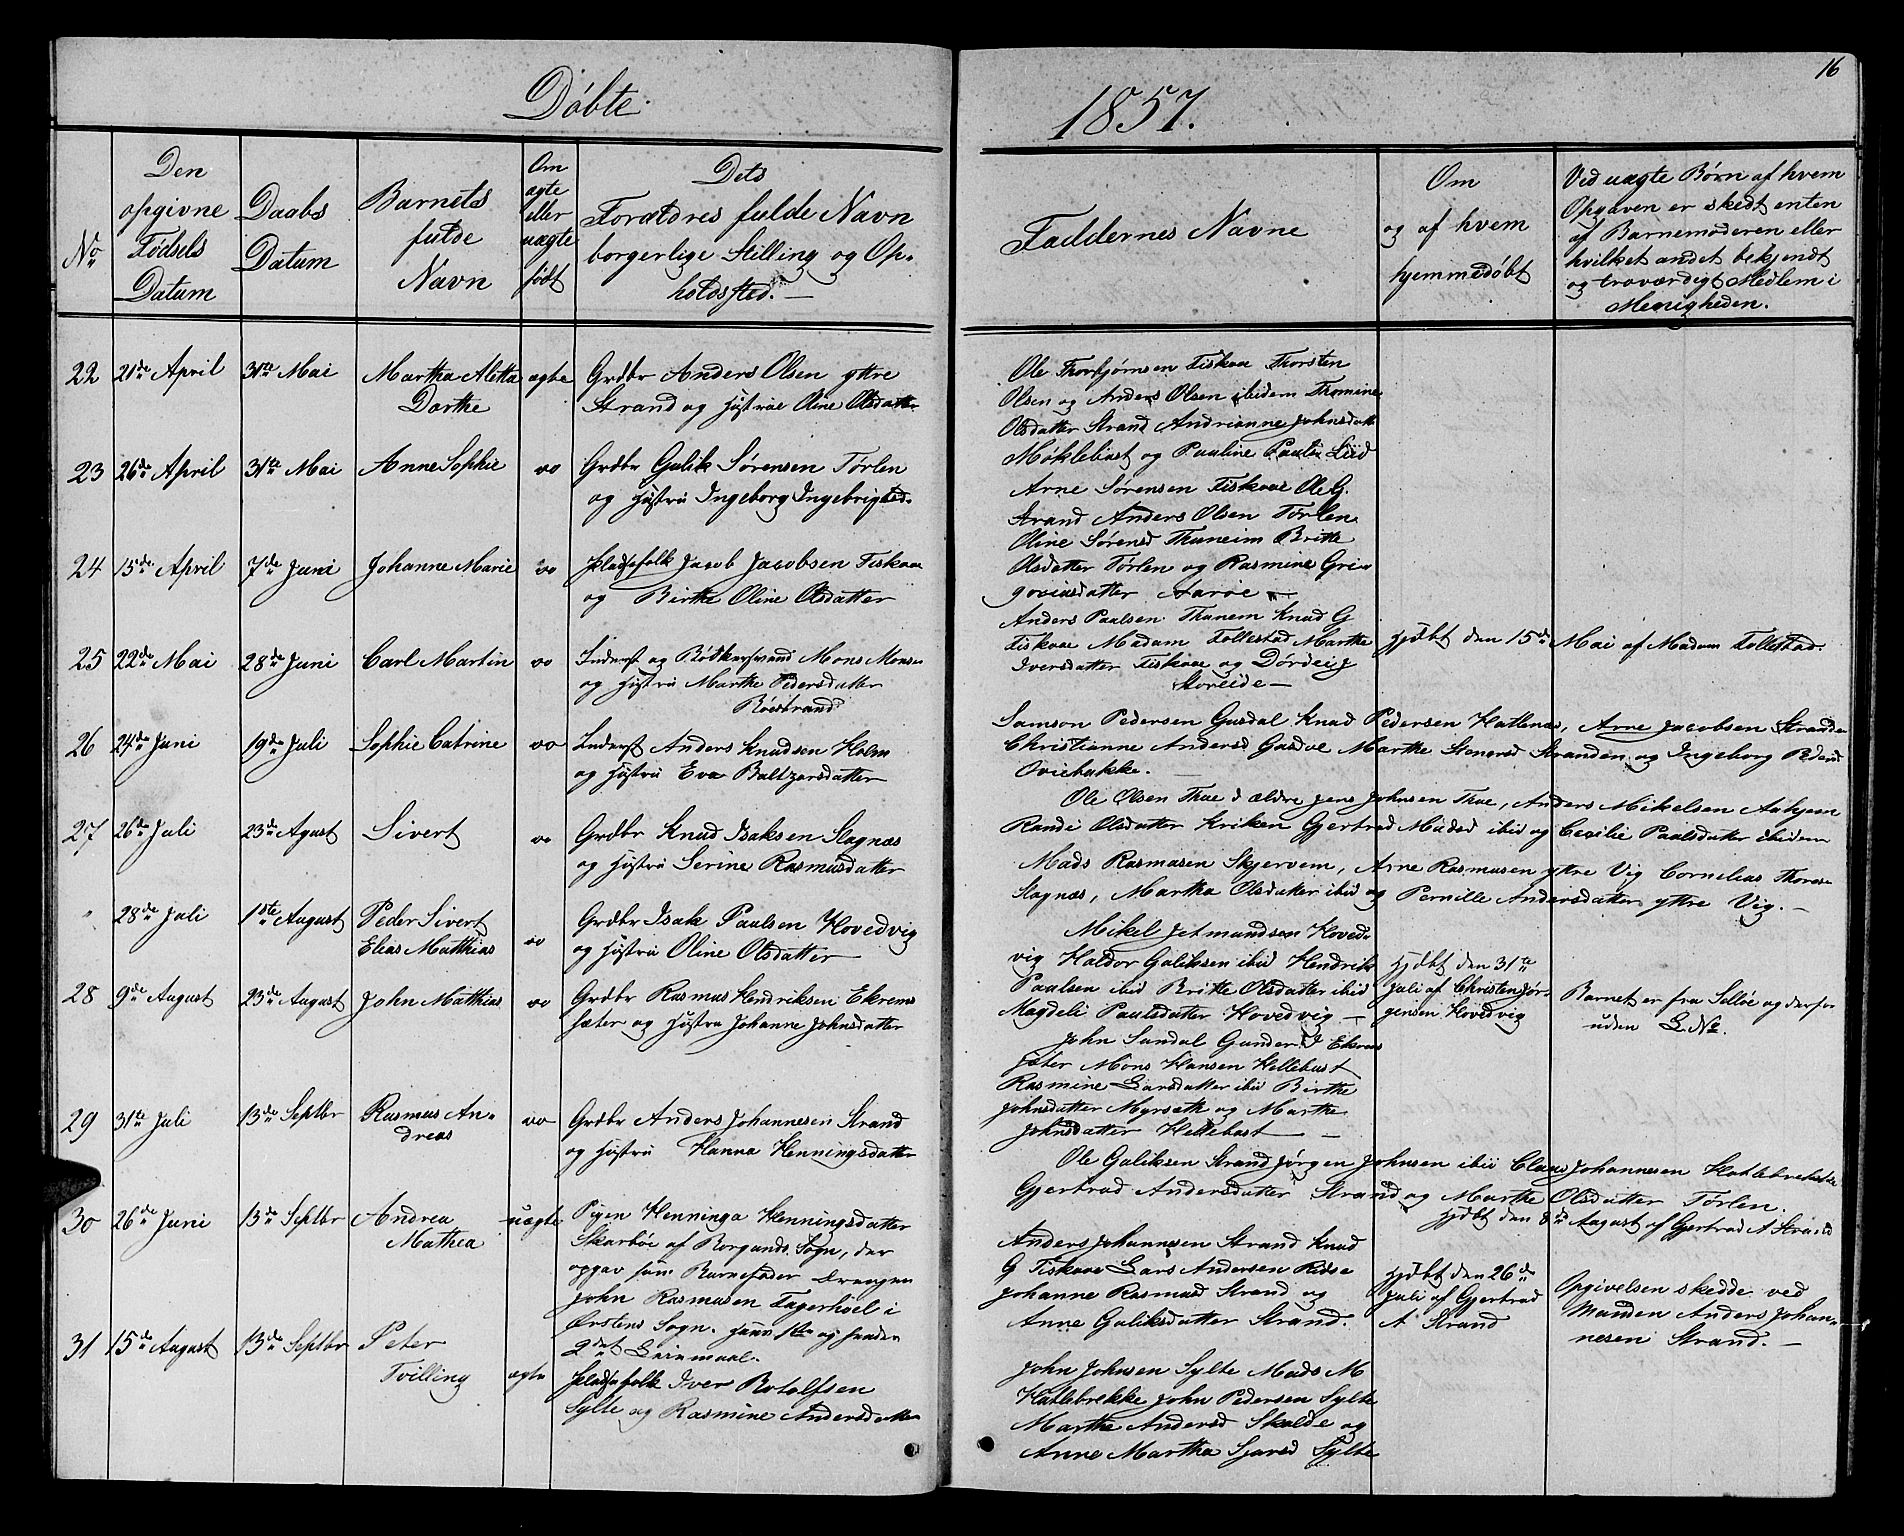 16
Døbte.
1857.
No
Den
opgivne
Fødsels
Datum
Daabs
Datum
Barnets
fulde
Navn
Om
ægte
eller
uægte
født
Dets
Forældres fulde Navn
borgerlige Stilling og Op-
holdssted. —
Faddernes Navne
Om
og af hvem
hjemmedøbt
Ved uægte Børn af hvem
Opgaven er skedt enten
af Barnemoderen eller
hvilket andet bekjendt
og troværdigt Medlem i
Menigheden.
22 21de April 31te Mai Martha Aletta ægte Grdbr Anders Olsen yttre
Dorthe Strand og Hustrue Oline Olsdatter
Ole Thorbjørnsen Fiskaae Thorsten
Olsen og Anders Olsen ibidem Thomine
Olsdatter Strand Andrianne Johnsdatt
Møklebust og Pauline Pauls Liid
23 26de April 31te Mai Anne Sophie oo Grdbr Gulik Sørensen Tørlen
og Hustru Ingeborg Ingebrigtsd.
Arne Sørensen Fiskaae Ole G.
Strand Anders Olsen Tørlen
Oline Sørensd Thuneim Britte
Olsdatter Tørlen og Rasmine Gri-
goriusdatter Aarøe —
24 15de April 7de Juni Johanne Marie oo Pladsefolk Jacob Jacobsen Fiskaae
og Birthe Oline Olsdatter
Anders Paulsen Thunem Knud G
Fiskaae Madam Follestad Marthe
Iversdatter Fiskaae og Dørdei J
Storeide —
25 22de Mai 28de Juni Carl Martin oo Inderst og Bødkersvend Mons Monsen
og Hustru Marthe Pedersdatter
Røestrand
Hjdbt den 15de Mai af Madam Follestad.
Samson Pedersen Gusdal Knud Pedersen Hatlenæs, Arne Jacobsen Stranden
Christianne Andersd Gusdal Marthe Stenersd Stranden og Ingeborg Pedersd
Oviebakke. —
26 24de Juni 19de Juli Sophie Catrine oo Inderst Anders Knudsen Holm
og Hustru Eva Baltzersdatter
Ole Olsen Thue d ældre Jens Johnsen Thue, Anders Mikelsen Aahjem
Randi Olsdatter Kriken Gjertrud Madsd ibid og Cecilie Paulsdatter ibidem
27 26de Juli 23de Agust Sivert oo Grdbr Knud Isaksen Slagnæs
og Hustru Serine Rasmusdatter
Mads Rasmusen Skjervem, Arne Rasmusen yttre Vig Cornelius Thores
Slagnæs, Martha Olsdatter ibid og Pernille Andersdatter yttre Vig. —
" 28de Juli 1ste August Peder Sivert
Elias Matthias oo Grdbr Isak Paulsen Hovedvig
og Hustru Oline Olsdatter
Mikel Jetmundsen Hoved-
vig Haldor Guliksen ibid Hendrik
Paulsen ibid Britte Olsdatter ibid
Magdeli Paulsdatter Hovedvig —
Hjdbt den 31te
Juli af Christen Jør-
gensen Hovedvig
Barnet er fra Selløe og derfor
uden L No.
28 9de August 23de August John Matthias oo Grdbr Rasmus Hendriksen Ekrem-
sæter og Hustru Johanne Johnsdatter
John Sandal Gunder J Ekrem
sæter Mons Hansen Hellebust
Rasmine Larsdatter ibid Birthe
Johnsdatter Myrseth og Marthe
Johnsdatter Hellebust —
29 31te Juli 13de Septbr Rasmus An-
dreas oo Grdbr Anders Johannesen Strand
og Hustru Hanna Henningsdatter
Ole Guliksen Strand Jørgen Johnsen ibid Claus Johannesen Hatlebrekke
Gjertrud Andersdatter Strand og Marthe Olsdatter Tørlen.
Hjdbt den 8de August af Gjertrud A Strand
30 26de Juni 13de Septbr Andrea
Mathea uægte Pigen Henninga Henningsdatter
Skarbøe af Borgunds Sogn, der
opgav som Barnefader Drengen
John Rasmusen Fagerhoel i
Ørstens Sogn. Hans 1ste og hendes
2det Leiermaal.
Anders Johannesen Strand Knud
G Fiskaae Lars Andersen Ridse
Johanne Rasmusd Strand og
Anne Guliksdatter Strand.
Hjdbt den 26de
Juli af Gjertrud
A Strand
Opgivelsen skedde ved
Manden Anders Johan-
nesen Strand. —
31 15de August 13de Septbr Peter
Tvilling ægte Pladsefolk Iver Botolfsen
Sylte og Rasmine Andersdatter
John Johnsen Sylte Mads M
Hatlebrekke John Pedersen Sylte
Marthe Andersd Skulde og
Anne Martha Sjursd Sylte